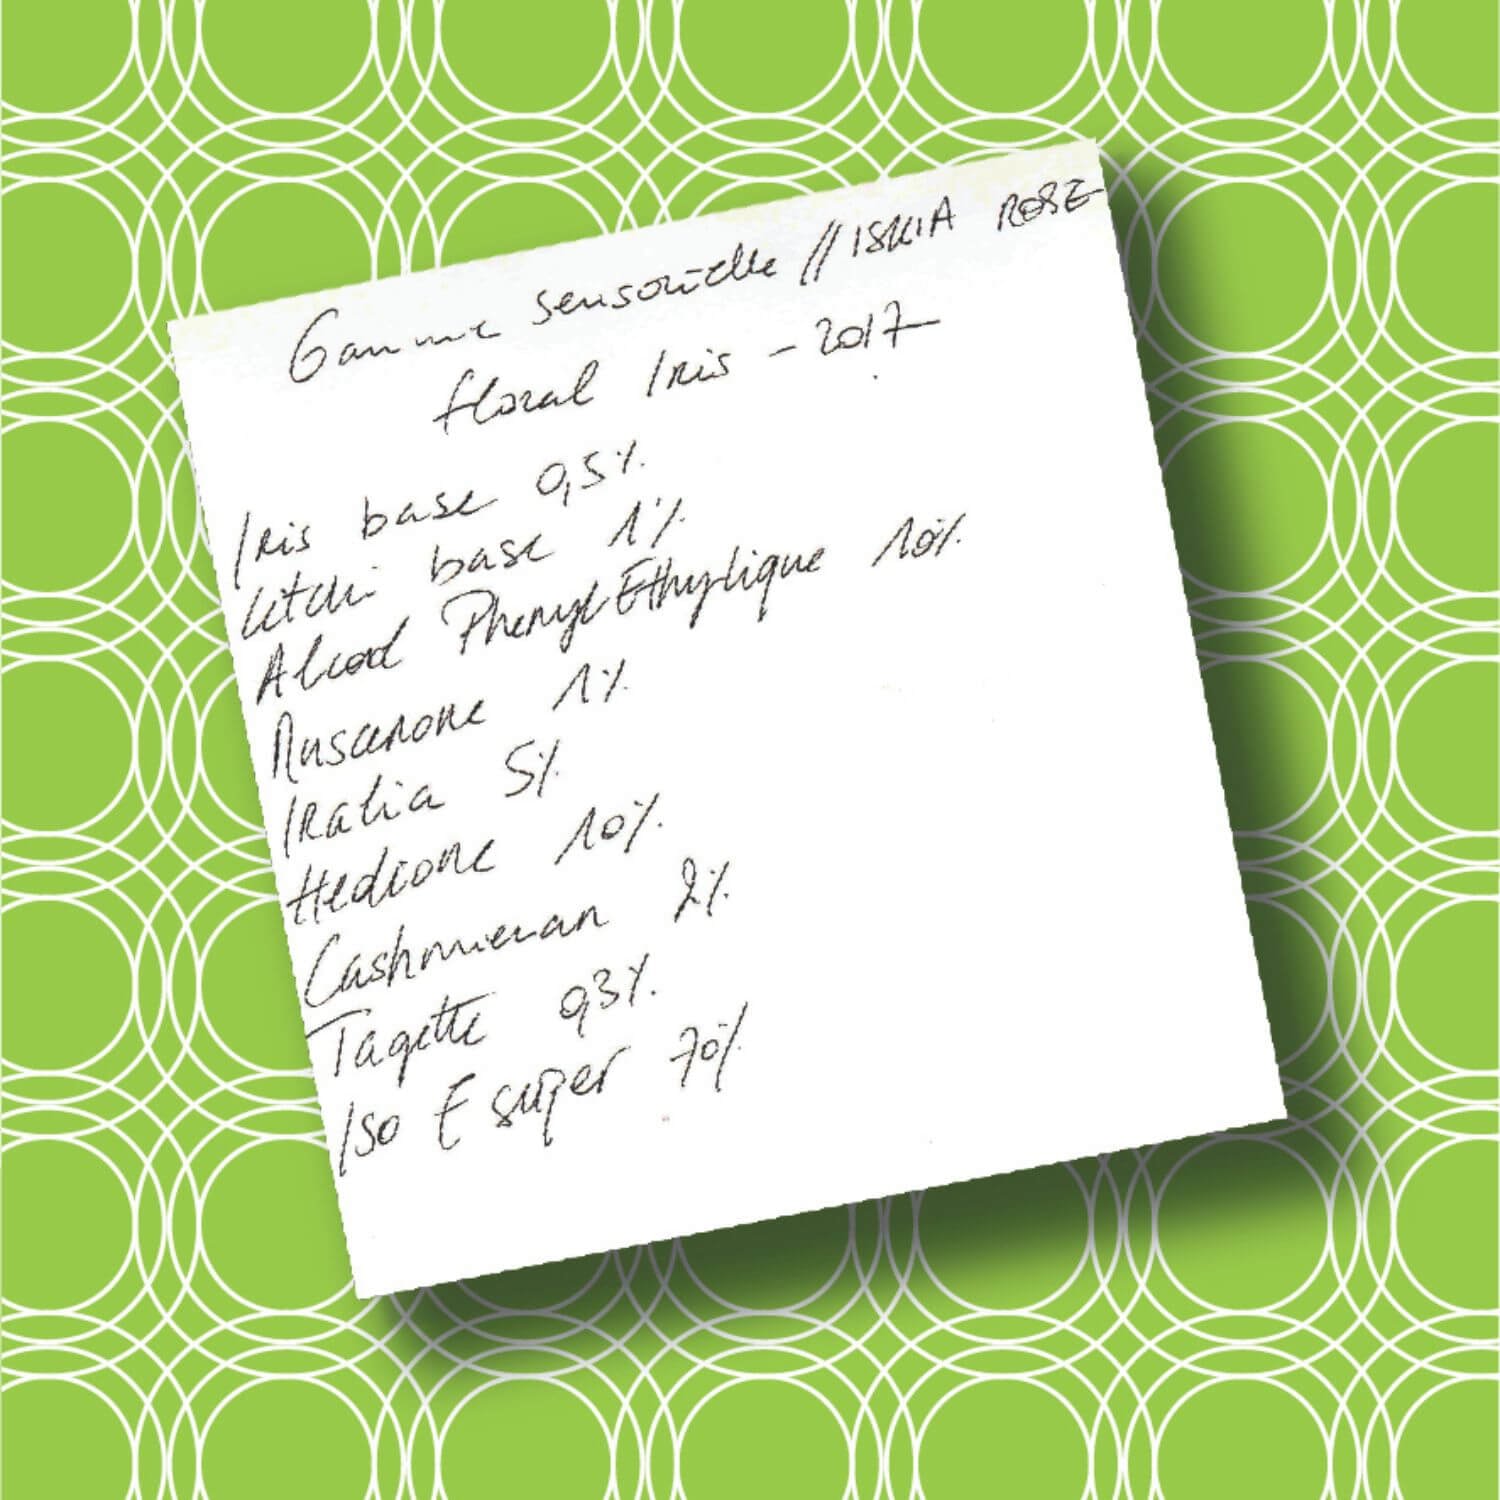 Gamme sensorielle // ISKIA ROSE
floral Iris - 2017
Iris base 0,5%
Litchi base 1%
Alcool Phenyl Ethylique 10%
Muscenone 1%
IRalia 5%
Hedione 10%
Cashmeran 2%
Tagette 0,3%
Iso E super 70%